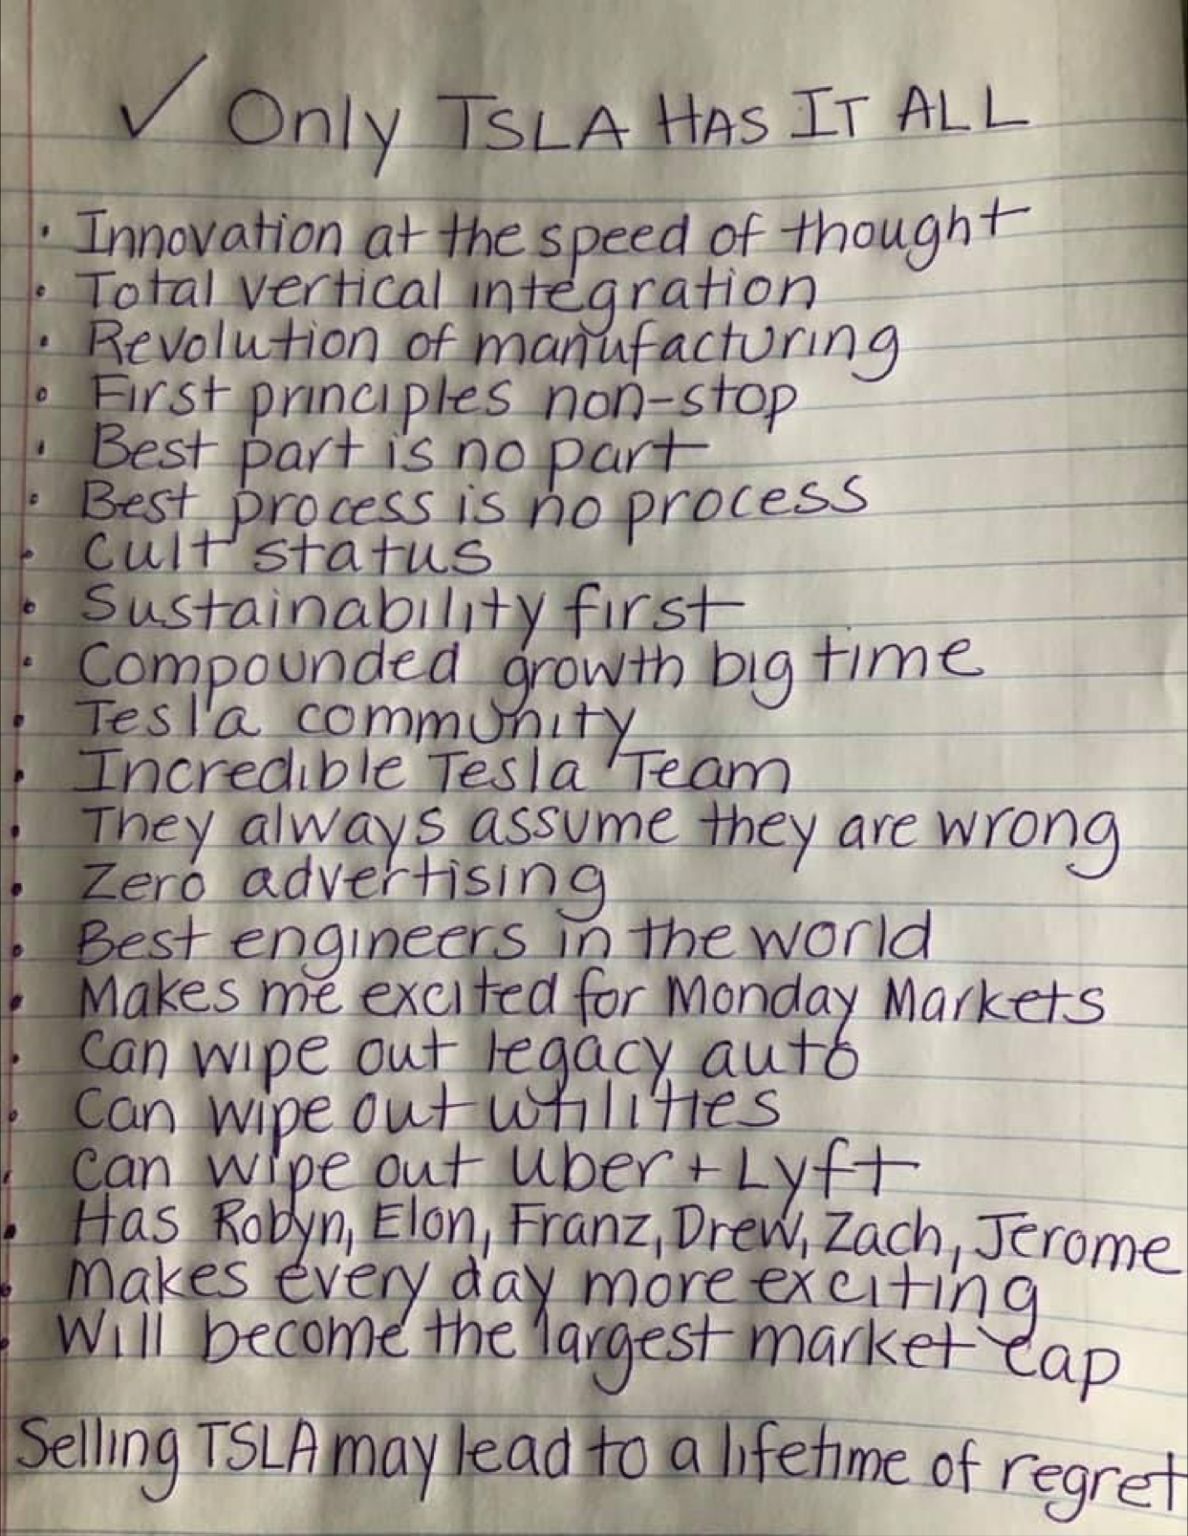 ✓ Only TSLA HAS IT ALL
· Innovation at the speed of thought
· Total vertical integration
· Revolution of manufacturing
· First principles non-stop
· Best part is no part
· Best process is no process
· Cult status
· Sustainability first
· Compounded growth big time
· Tesla community
· Incredible Tesla Team
· They always assume they are wrong
· Zero advertising
· Best engineers in the world
· Makes me excited for Monday Markets
· Can wipe out legacy auto
· Can wipe out utilities
· Can wipe out Uber + Lyft
· Has Robyn, Elon, Franz, Drew, Zach, Jerome
· Makes every day more exciting
· Will become the largest market cap
Selling TSLA may lead to a lifetime of regret